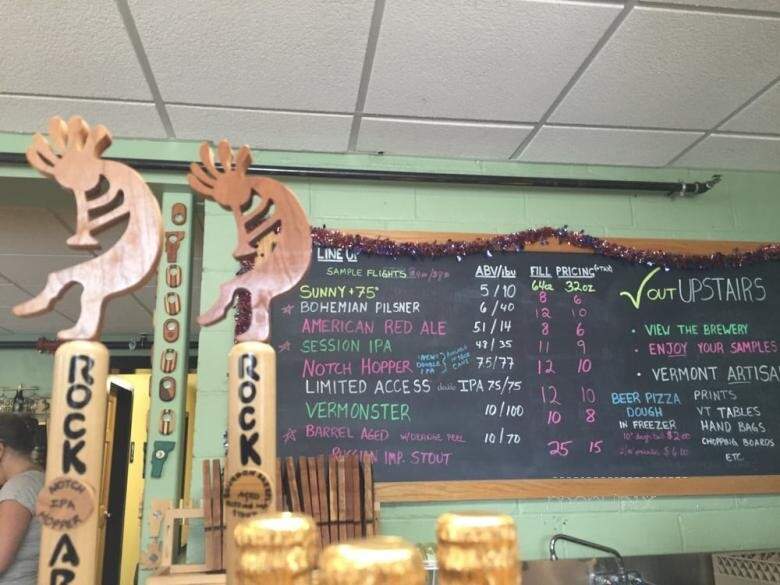 LINE U
SAMPLE FLIGHTS
ABV/ibu
FILL PRICING
64oz 32.oz
SUNNY + 75° 5/10 8 6
BOHEMIAN PILSNER 6/40 12 10
AMERICAN RED ALE 5.1/14 8 6
SESSION IPA 48/35 11 9
NOTCH HOPPER NEW! DOUBLE IPA AVAILABLE CANS 7.5/77 12 10
LIMITED ACCESS double IPA 75/75 12 10
VERMONSTER 10/100 10 8
BARREL AGED W/ORANGE PEEL 10/70
RUSSIAN IMP. STOUT 25 15
✓OUT UPSTAIRS
• VIEW THE BREWERY
• ENJOY YOUR SAMPLES
• VERMONT ARTISA
PRINTS
VT TABLES
HAND BAGS
CHOPPING BOARDS
ETC.
BEER PIZZA
DOUGH
IN FREEZER
$2.00
ROCK AR
NOTCH
IPA
HOPPER
ROCK
AGED